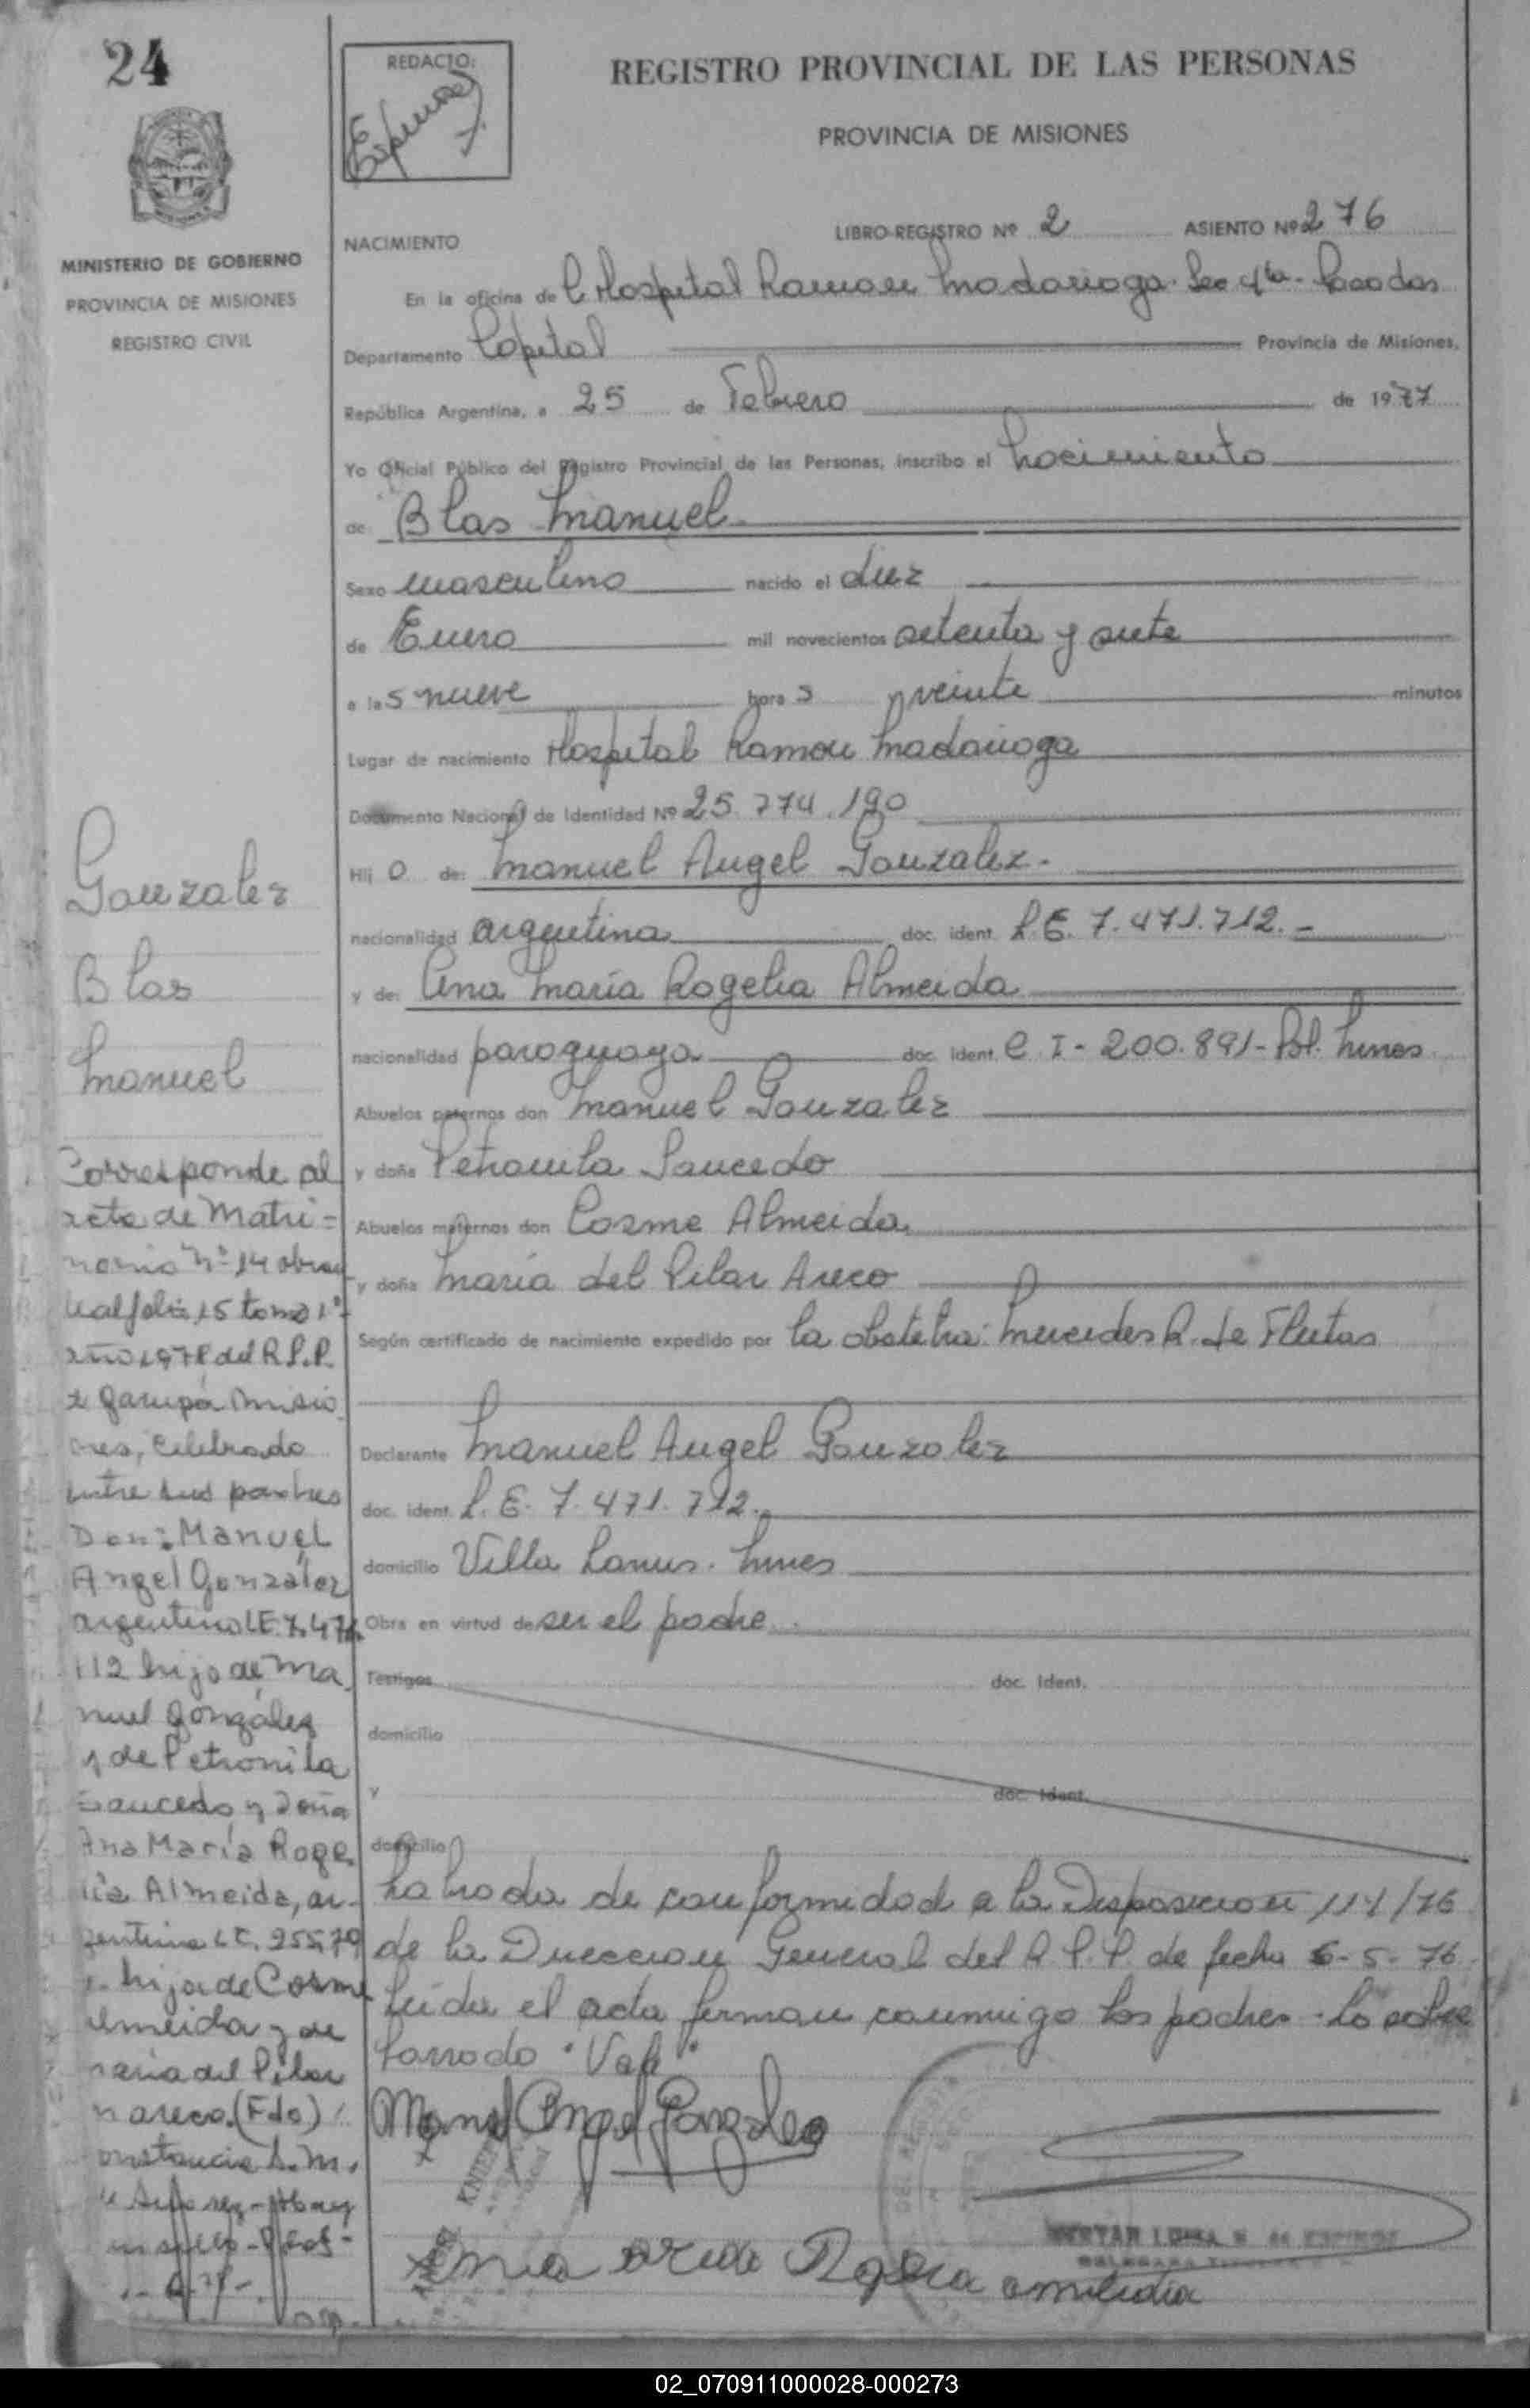 24
MINISTERIO DE GOBIERNO
PROVINCIA DE MISIONES
REGISTRO CIVIL
REDACTO:
REGISTRO PROVINCIAL DE LAS PERSONAS
PROVINCIA DE MISIONES
NACIMIENTO
LIBRO-REGISTRO Nº 2 ASIENTO Nº 276
En la oficina de Hospital Ramon Madariaga. Sec 4ta. Posadas
Departamento Capital Provincia de Misiones,
República Argentina, a 25 de Febrero de 1977
Yo Oficial Público del Registro Provincial de las Personas, inscribo el Nacimiento
de Blas Manuel
Sexo masculino nacido el diez
de Enero mil novecientos setenta y siete
a las nueve horas y veinte minutos
Lugar de nacimiento Hospital Ramon Madariaga
Documento Nacional de Identidad Nº 25.774.190
Hijo de: Manuel Angel Gonzalez.-
nacionalidad argentina doc. ident. L.E. 7.471.712.-
y de: Ana Maria Rogelia Almeida
nacionalidad paraguaya doc. ident. C.I - 200.891 - Pol. Mnes
Abuelos paternos don Manuel Gonzalez
y doña Petronila Saucedo
Abuelos maternos don Cosme Almeida
y doña Maria del Pilar Areco
Según certificado de nacimiento expedido por la obstetra: Mercedes R. de Fleitas
Declarante Manuel Angel Gonzalez
doc. ident. L.E. 7.471.712.
domicilio Villa Lanus. Mnes
Obra en virtud de ser el padre.
Testigos doc. ident.
domicilio
y doc. ident.
domicilio
Labrada de conformidad a la Disposicion 114/76
de la Direccion General del R.P.P. de fecha 6-5-76
Leida el acta firman conmigo los padres - Lo sobre
borrado "Vale"
Manuel Angel Gonzalez
Gonzalez
Blas
Manuel
Corresponde al
acta de Matri=
monio Nº 14 obran
te al folio 15 tomo 1º
año 1978 del R.P.P.
de Garupá Misio
nes, celebrado
entre sus padres
Don: Manuel
Angel Gonzalez
argentino LE. 7.471.
712 hijo de Ma
nuel González
y de Petronila
Saucedo y Doña
Ana María Roge
lia Almeida, ar-
gentina L.C. 95579
hija de Cosme
Almeida y de
Maria del Pilar
Areco. (Fdo)
02_070911000028-000273